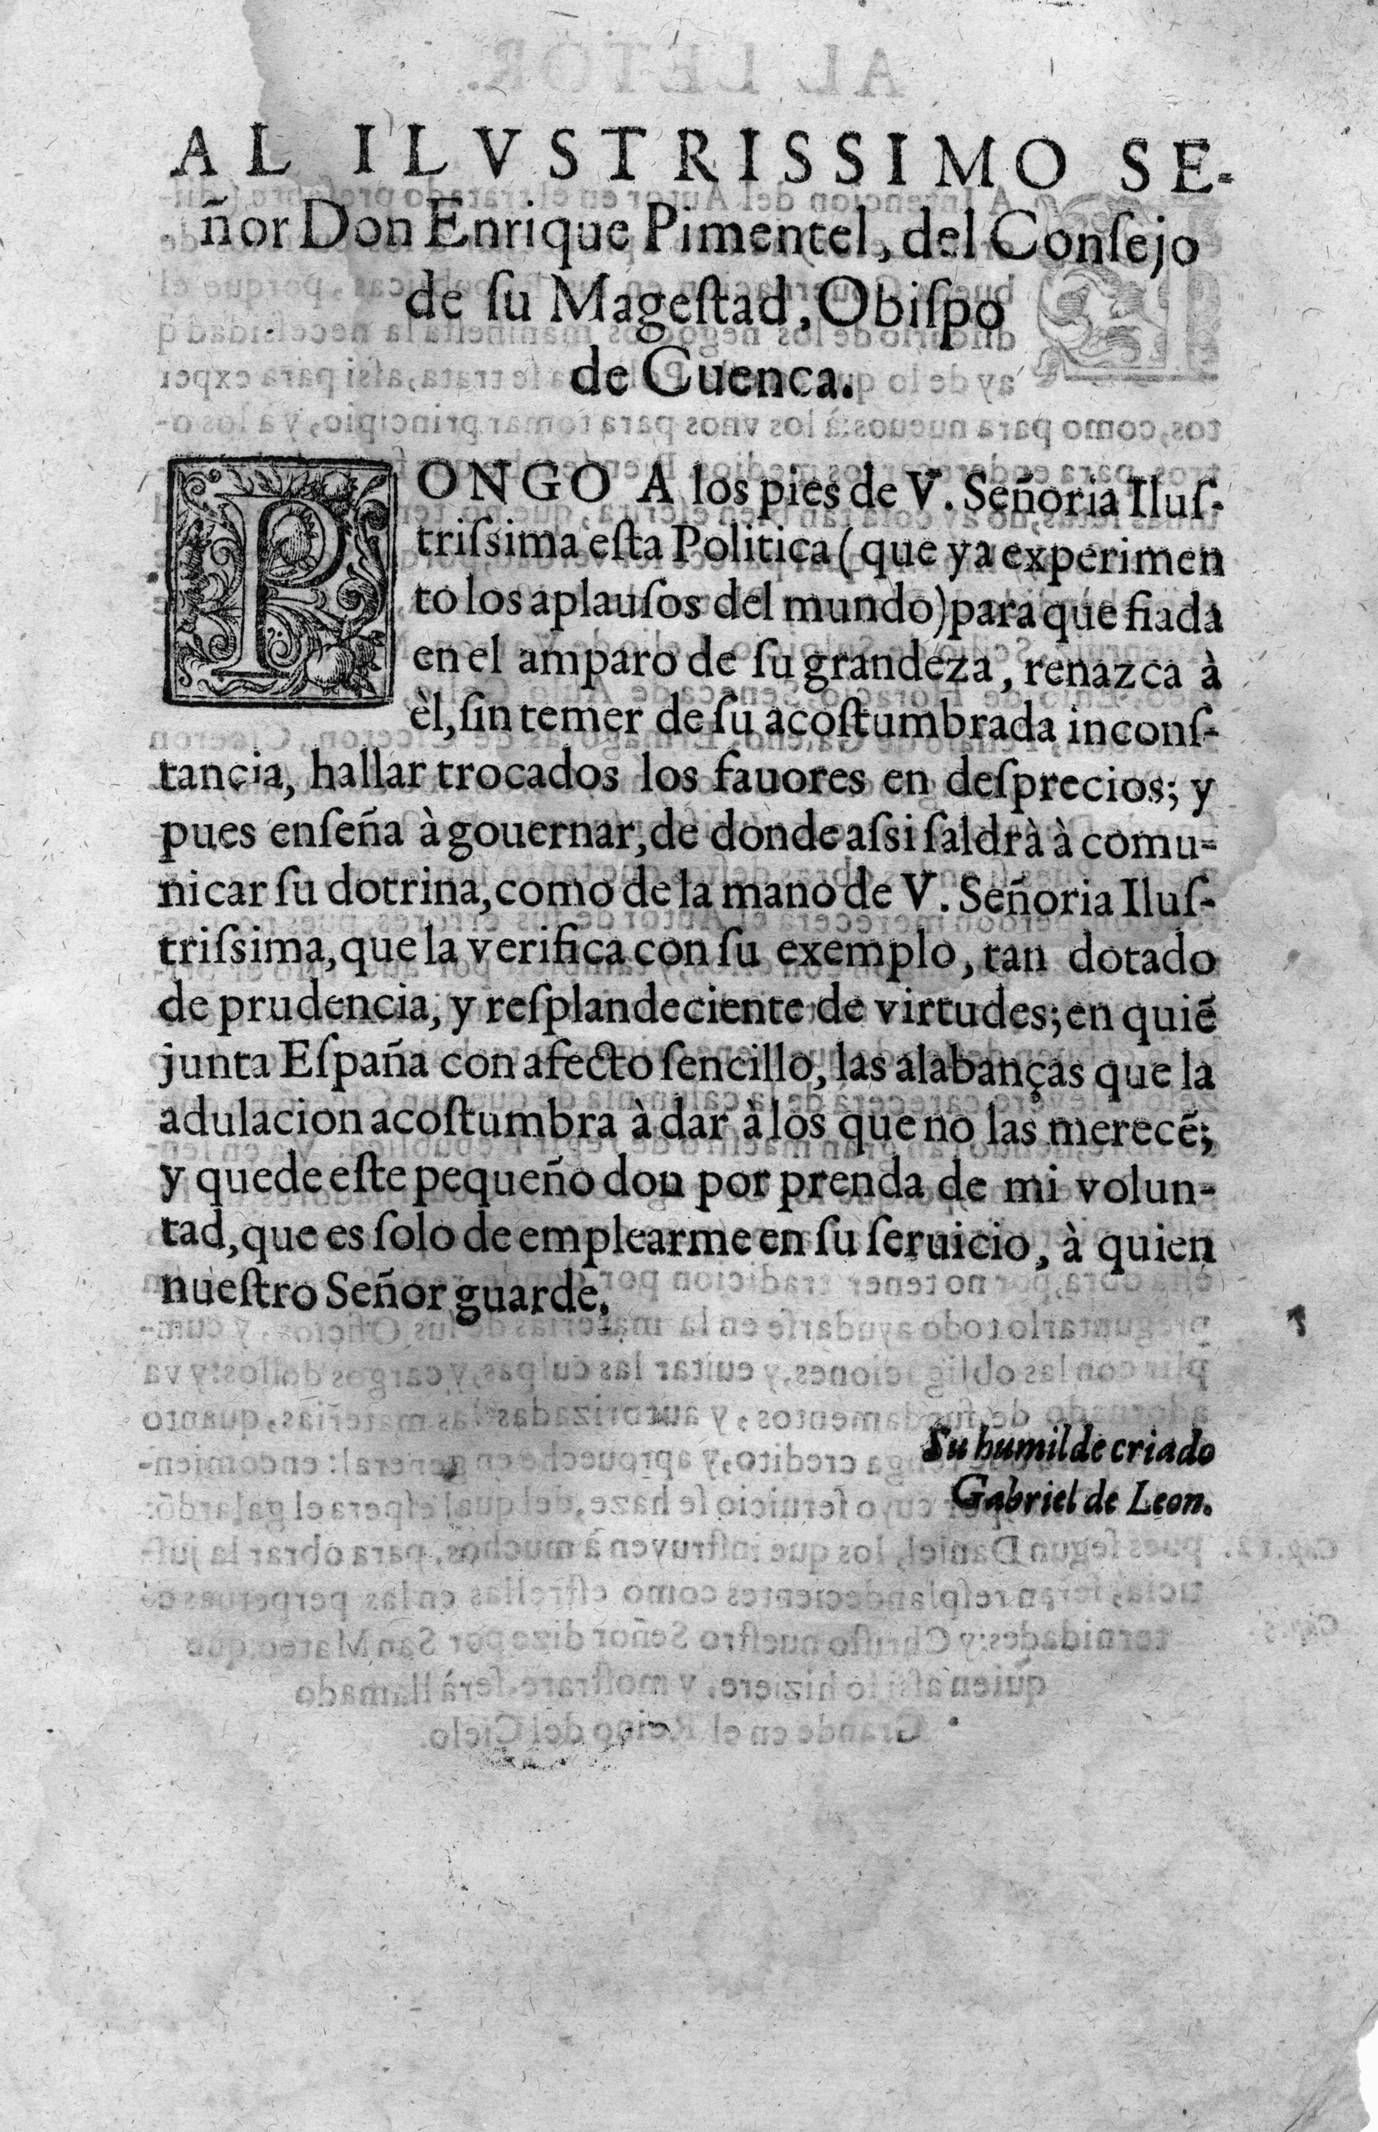 AL ILVSTRISSIMO SE-
ñor Don Enrique Pimentel, del Conſejo
de ſu Mageſtad, Obiſpo
de Cuenca.
PONGO A los pies de V. Señoria Iluſ-
triſsima eſta Politica (que ya experimen
to los aplauſos del mundo) para que fiada
en el amparo de ſu grandeza, renazca à
èl, ſin temer de ſu acoſtumbrada inconſ-
tancia, hallar trocados los fauores en deſprecios; y
pues enſeña à gouernar, de donde aſsi ſaldrà à comu-
nicar ſu dotrina, como de la mano de V. Señoria Iluſ-
triſsima, que la verifica con ſu exemplo, tan dotado
de prudencia, y reſplandeciente de virtudes; en quiẽ
junta Eſpaña con afecto ſencillo, las alabanças que la
adulacion acoſtumbra à dar à los que no las merecẽ;
y quede eſte pequeño don por prenda de mi volun-
tad, que es ſolo de emplearme en ſu ſeruicio, à quien
nueſtro Señor guarde.
Su humilde criado
Gabriel de Leon.